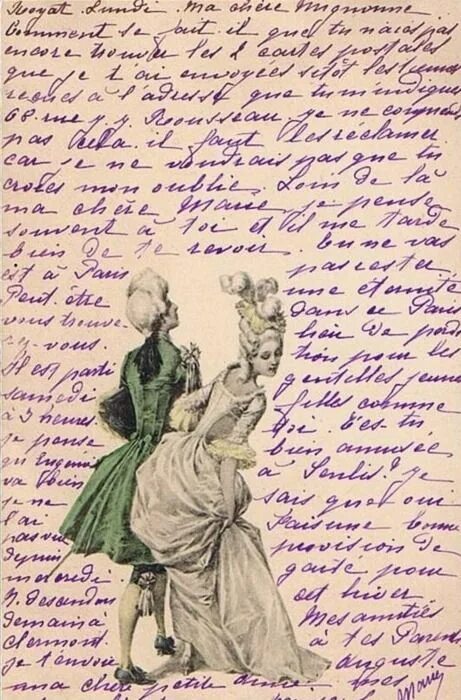 Royat. Lundi. Ma chère Mignonne
Comment se fait. il que tu n'aies pas
encore trouvé les 2 cartes postales
que je t'ai envoyées sitôt les
reçues à l'adresse que tu m'indiques
68 rue J. J. Rousseau. je ne comprends
pas cela. il faut les réclamer
car je ne voudrais pas que tu
croies mon oublie. Loin de là
ma chère Marie je pense
souvent à toi et il me tarde
bien de te revoir. Tu ne vas
pas rester
une éternité
dans ce Paris
lieu de perdi
tion pour les
gentilles jeunes
filles comme
toi. T'es tu
bien amusée
à Senlis? Je
sais que oui
Fais une bonne
provision de
gaité pour
cet hiver.
Mes amitiés
à tes Parents
est à Paris
Peut. être
vous trouve-
rez-vous.
Il est parti
samedi
à 3 heures.
je pense
qu'Eugenie
va bien
je ne
l'ai
pas vue
depuis
mercredi
N. descendons
demain à
Clermont.
je t'envoie
ma chère petite amie mes
Marie